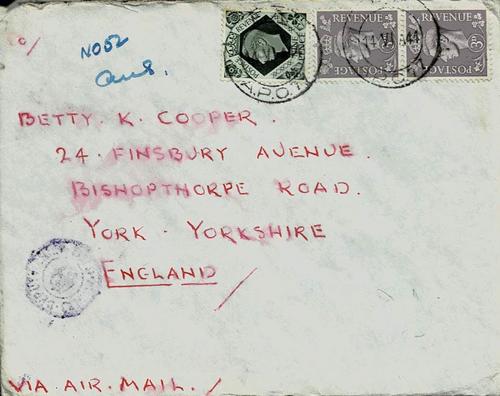 c/
NO52
Ans.
REVENUE REVENUE
3D 3D
POSTAGE POSTAGE
A.P.O.
BETTY. K. COOPER.
24. FINSBURY AVENUE.
BISHOPTHORPE ROAD.
YORK. YORKSHIRE
ENGLAND
VIA. AIR. MAIL. /